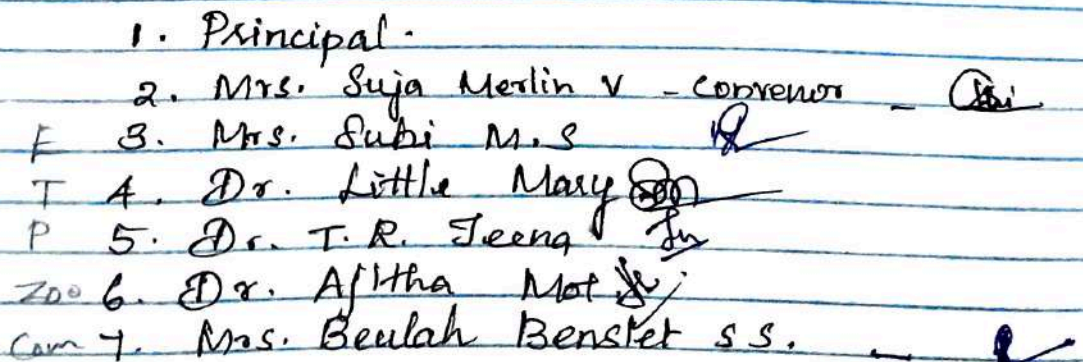 1. Principal.
2. Mrs. Suja Merlin V - convenor -
F 3. Mrs. Subi M.S
T 4. Dr. Little Mary
P 5. Dr. T. R. Jeena
Zoo 6. Dr. Ajitha
Com 7. Mrs. Beulah Benslet s s. -